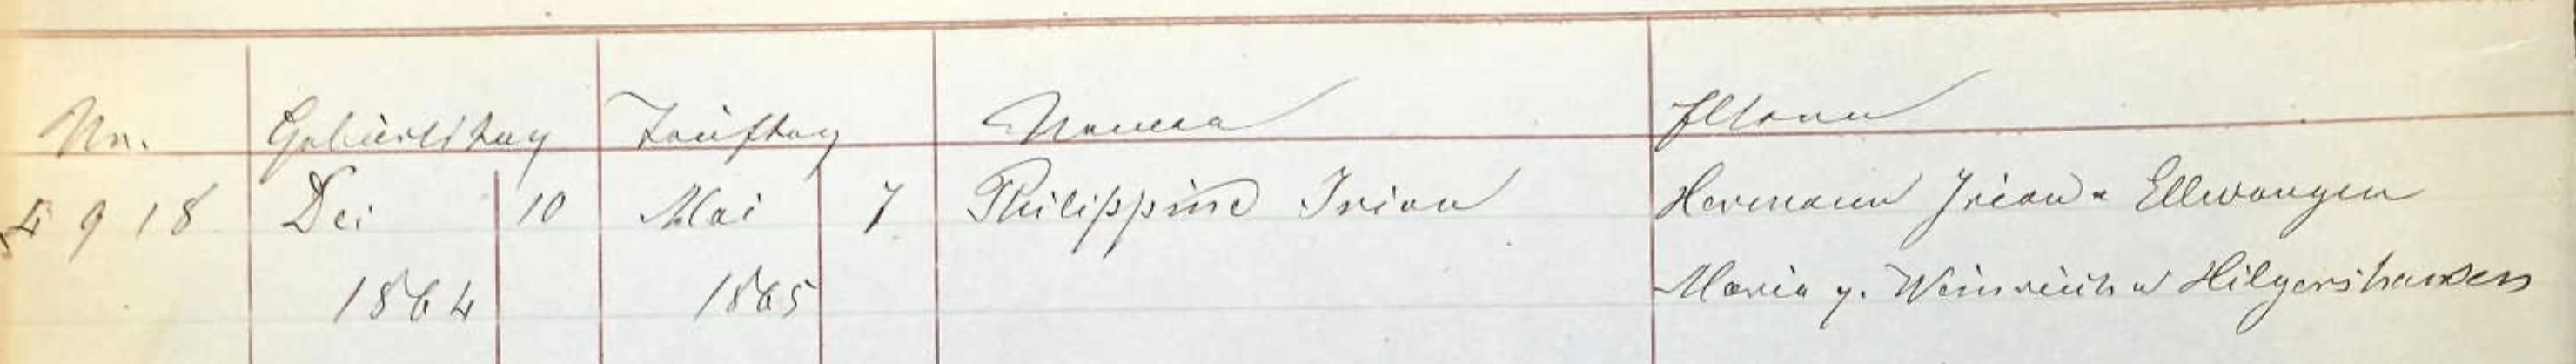 Nr. Geburtstag Tauftag Namen Eltern
4918 Dei 10 Mai 7 Philippine Irion Hermann Irion a Ellwangen
1864 1865 Maria g. Weinreich a Hilgershausen